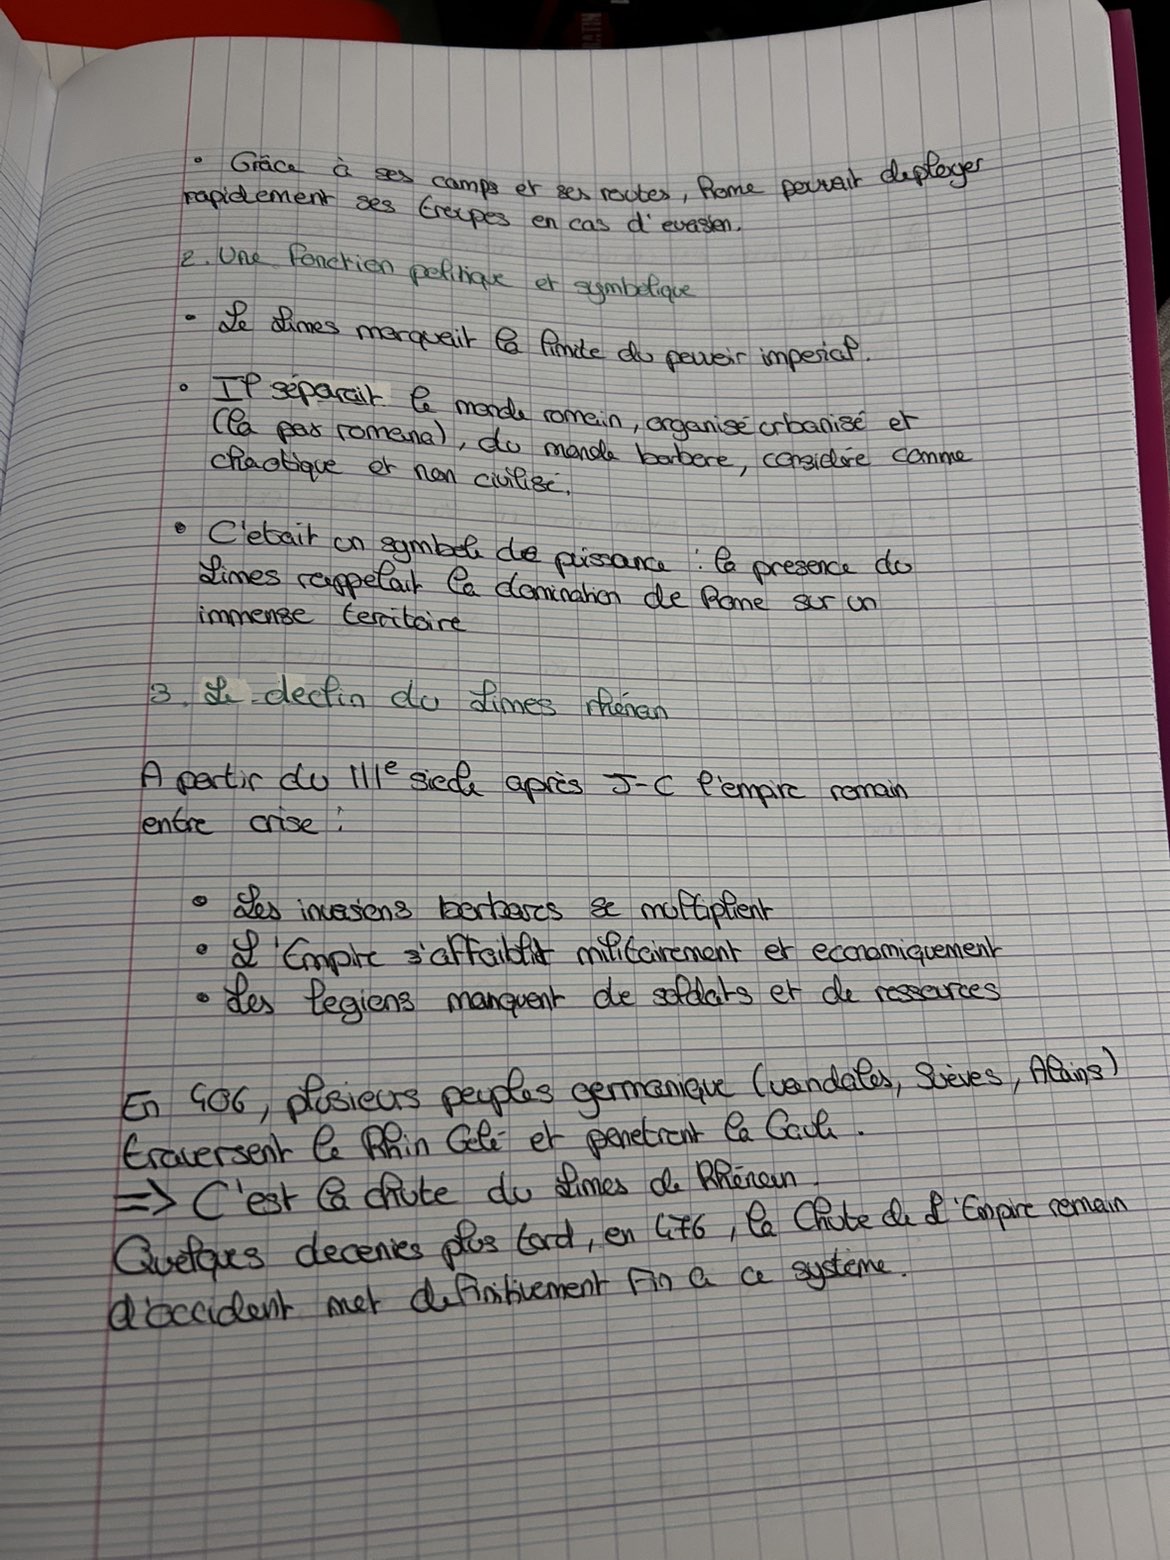 • Grâce à ses camps et ses routes, Rome pouvait deployer
rapidement ses troupes en cas d'evasion.
2. Une fonction politique et symbolique
• Le Limes marquait la limite du pouvoir imperial.
• Il séparait le monde romain, organisé urbanisé et
(la pax romana), du monde barbare, considére comme
chaotique et non civilisé.
• C'etait un symbole de puissance : la presence du
Limes rappelait la domination de Rome sur un
immense territoire
3. Le declin du Limes rhénan
A partir du IIIe siecle après J-C l'empire romain
entre crise :
• Les invasions barbares se multiplient
• L'Empire s'affaiblit militairement et economiquement
• Les legions manquent de soldats et de ressources
En 406, plusieurs peuples germanique (vandales, Suèves, Alains)
traversent le Rhin Gelé et penetrent la Gaule.
=> C'est la chute du Limes de Rhénan.
Quelques decenies plus tard, en 476, la Chute de L'Empire romain
d'occident met definitivement fin a ce système.